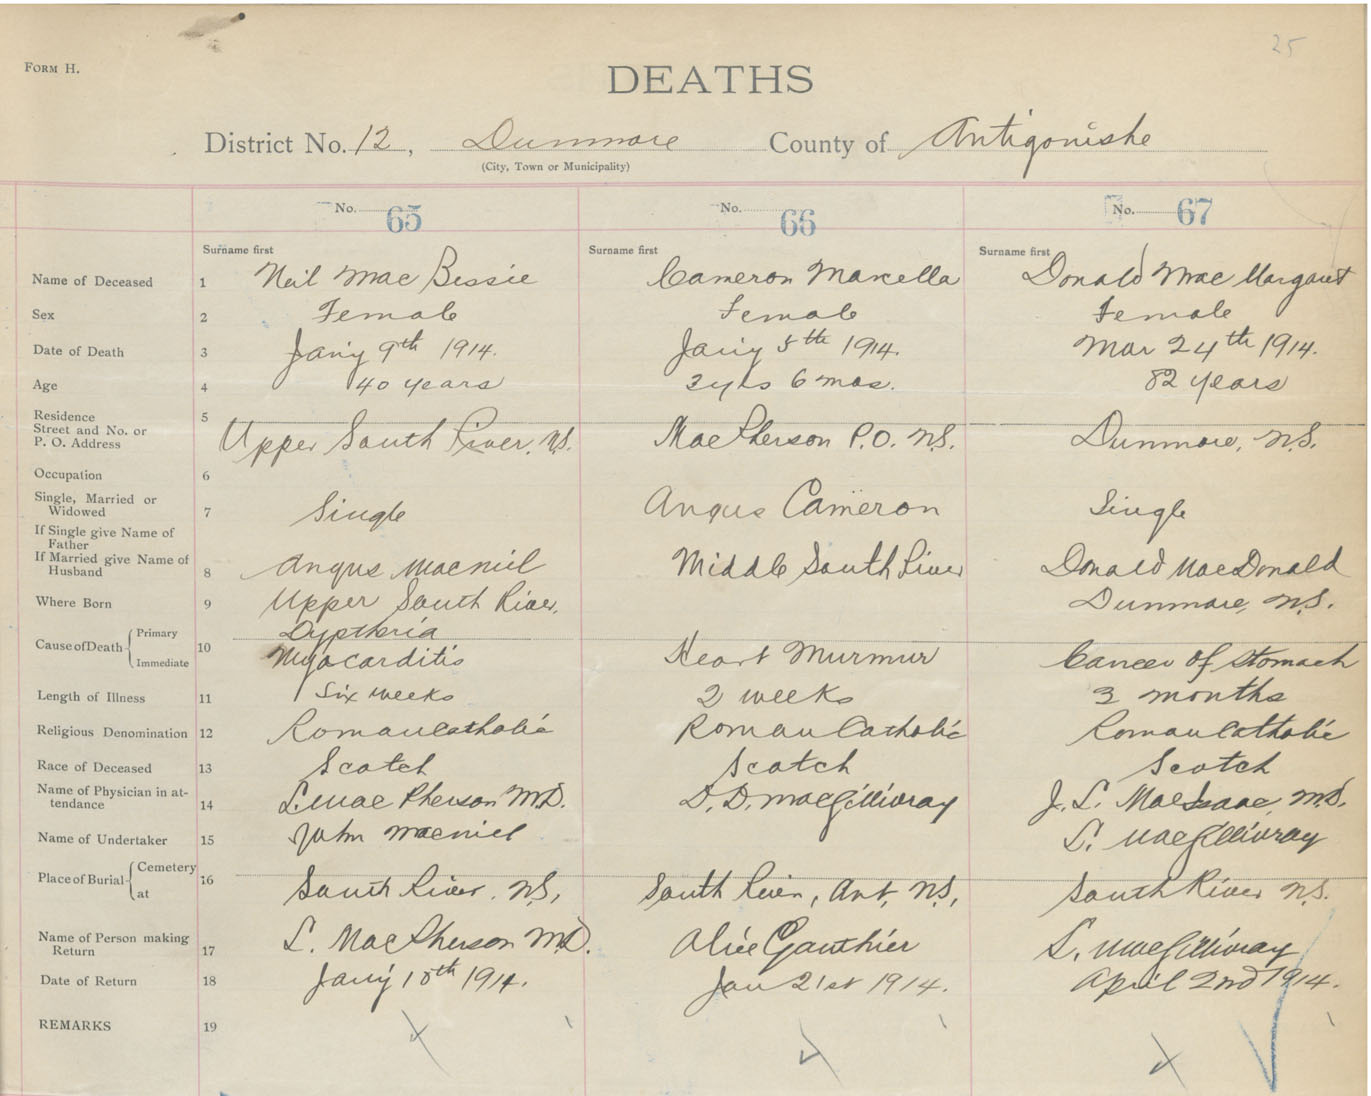 25
FORM H.
DEATHS
District No. 12, Dunmore County of Antigonishe
(City, Town or Municipality)
No. 65 No. 66 No. 67
Surname first Surname first Surname first
Name of Deceased 1 Neil Mac Bessie Cameron Marcella Donald Mac Margaret
Sex 2 Female Female Female
Date of Death 3 Jan'y 9th 1914. Jan'y 5th 1914. Mar 24th 1914.
Age 4 40 years 3 yrs 6 mos. 82 years
Residence 5
Street and No. or
P. O. Address Upper South River, N.S. MacPherson P.O. N.S. Dunmore, N.S.
Occupation 6
Single, Married or
Widowed 7 Single Angus Cameron Single
If Single give Name of
Father
If Married give Name of
Husband 8 Angus Macniel Middle South River Donald MacDonald
Where Born 9 Upper South River, Dunmore, N.S.
Cause of Death Primary 10 Dyptheria
Immediate Myocarditis Heart Murmur Cancer of Stomach
Length of Illness 11 Six weeks 2 weeks 3 months
Religious Denomination 12 Roman Catholic Roman Catholic Roman Catholic
Race of Deceased 13 Scotch Scotch Scotch
Name of Physician in at-
tendance 14 L. MacPherson M.D. D. D. MacGillivray J. L. MacIsaac, M.D.
Name of Undertaker 15 John Macniel L. MacGillivray
Place of Burial Cemetery 16
at South River, N.S, South River, Ant, N.S, South River N.S.
Name of Person making
Return 17 L. MacPherson M.D. Alice Gauthier L. MacGillivray
Date of Return 18 Jan'y 10th 1914. Jan 21st 1914. April 2nd 1914.
REMARKS 19